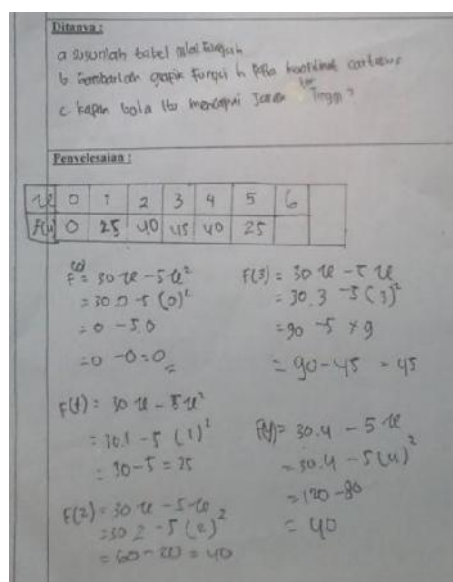 Ditanya :
a susunlah tabel nilai fungsi h
b Gambarlah grafik fungsi h pada koordinat cartesius
c kapan bola itu mencapai
Penyelesaian :
x 0 1 2 3 4 5 6
F(x) 0 25 40 45 40 25
F(0) = 30x - 5x²
= 30.0 - 5 (0)²
= 0 - 5.0
= 0 - 0 = 0
F(1) = 30x - 5x²
= 30.1 - 5 (1)²
= 30 - 5 = 25
F(2) = 30x - 5x
= 30 2 - 5 (2)²
= 60 - 20 = 40
F(3) = 30x - 5x
= 30.3 - 5 (3)²
= 90 - 5 x 9
= 90 - 45 = 45
F(4) = 30.4 - 5x
= 30.4 - 5(4)²
= 120 - 80
= 40